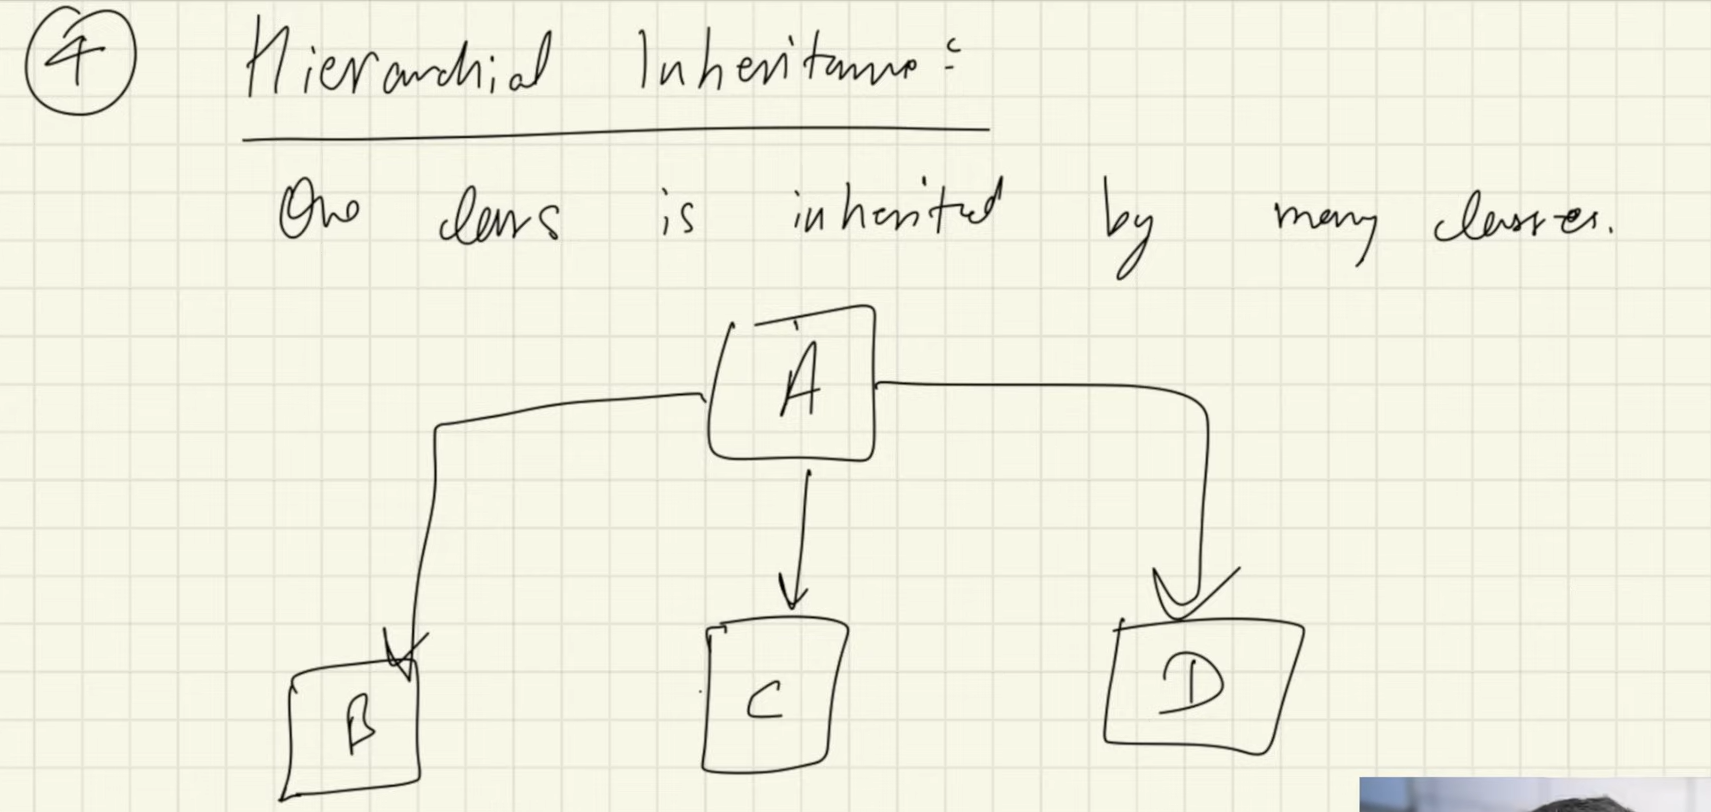 4 Hierarchial Inheritance:
One class is inherited by many classes.
A
B C D